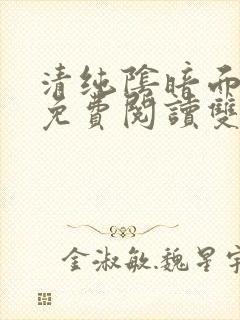 清纯陰暗而
免費閱讀雙
金淑敏.魏星宇